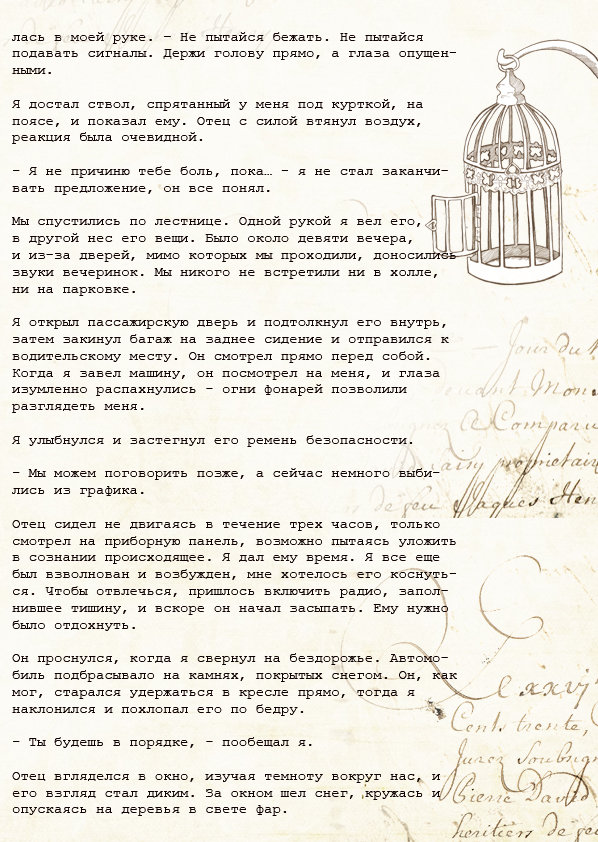 лась в моей руке. – Не пытайся бежать. Не пытайся
подавать сигналы. Держи голову прямо, а глаза опущен-
ными.
Я достал ствол, спрятанный у меня под курткой, на
поясе, и показал ему. Отец с силой втянул воздух,
реакция была очевидной.
– Я не причиню тебе боль, пока… – я не стал заканчи-
вать предложение, он все понял.
Мы спустились по лестнице. Одной рукой я вел его,
в другой нес его вещи. Было около девяти вечера,
и из-за дверей, мимо которых мы проходили, доносились
звуки вечеринок. Мы никого не встретили ни в холле,
ни на парковке.
Я открыл пассажирскую дверь и подтолкнул его внутрь,
затем закинул багаж на заднее сидение и отправился к
водительскому месту. Он смотрел прямо перед собой.
Когда я завел машину, он посмотрел на меня, и глаза
изумленно распахнулись – огни фонарей позволили
разглядеть меня.
Я улыбнулся и застегнул его ремень безопасности.
– Мы можем поговорить позже, а сейчас немного выби-
лись из графика.
Отец сидел не двигаясь в течение трех часов, только
смотрел на приборную панель, возможно пытаясь уложить
в сознании происходящее. Я дал ему время. Я все еще
был взволнован и возбужден, мне хотелось его коснуть-
ся. Чтобы отвлечься, пришлось включить радио, запол-
нившее тишину, и вскоре он начал засыпать. Ему нужно
было отдохнуть.
Он проснулся, когда я свернул на бездорожье. Автомо-
биль подбрасывало на камнях, покрытых снегом. Он, как
мог, старался удержаться в кресле прямо, тогда я
наклонился и похлопал его по бедру.
– Ты будешь в порядке, – пообещал я.
Отец вгляделся в окно, изучая темноту вокруг нас, и
его взгляд стал диким. За окном шел снег, кружась и
опускаясь на деревья в свете фар.
Jour du
Mon
Comparu
proprietair
de feu Jaques Hen
Lxxvj
Cents trente,
Pierre David
heritiers de feu